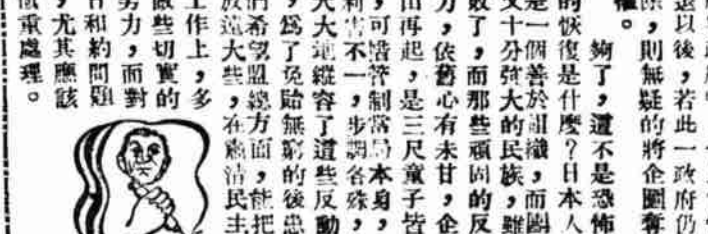 退以後，若此一政府仍
際，則無疑的將企圖奪
權。
夠了，這不是恐怖
的恢復是什麼？日本人
是一個善於組織，而團
又十分強大的民族，雖
敗了，而那些頑固的反
力，依舊心有未甘，企
山再起，是三尺童子皆
，可惜管制當局本身，
利害不一，步調各殊，
大大地縱容了這些反動
，爲了免貽無窮的後患
們希望盟總方面，能把
放遠大些，在肅清民主
工作上，多
做些切實的
努力，而對
日和約問題
，尤其應該
慎重處理。